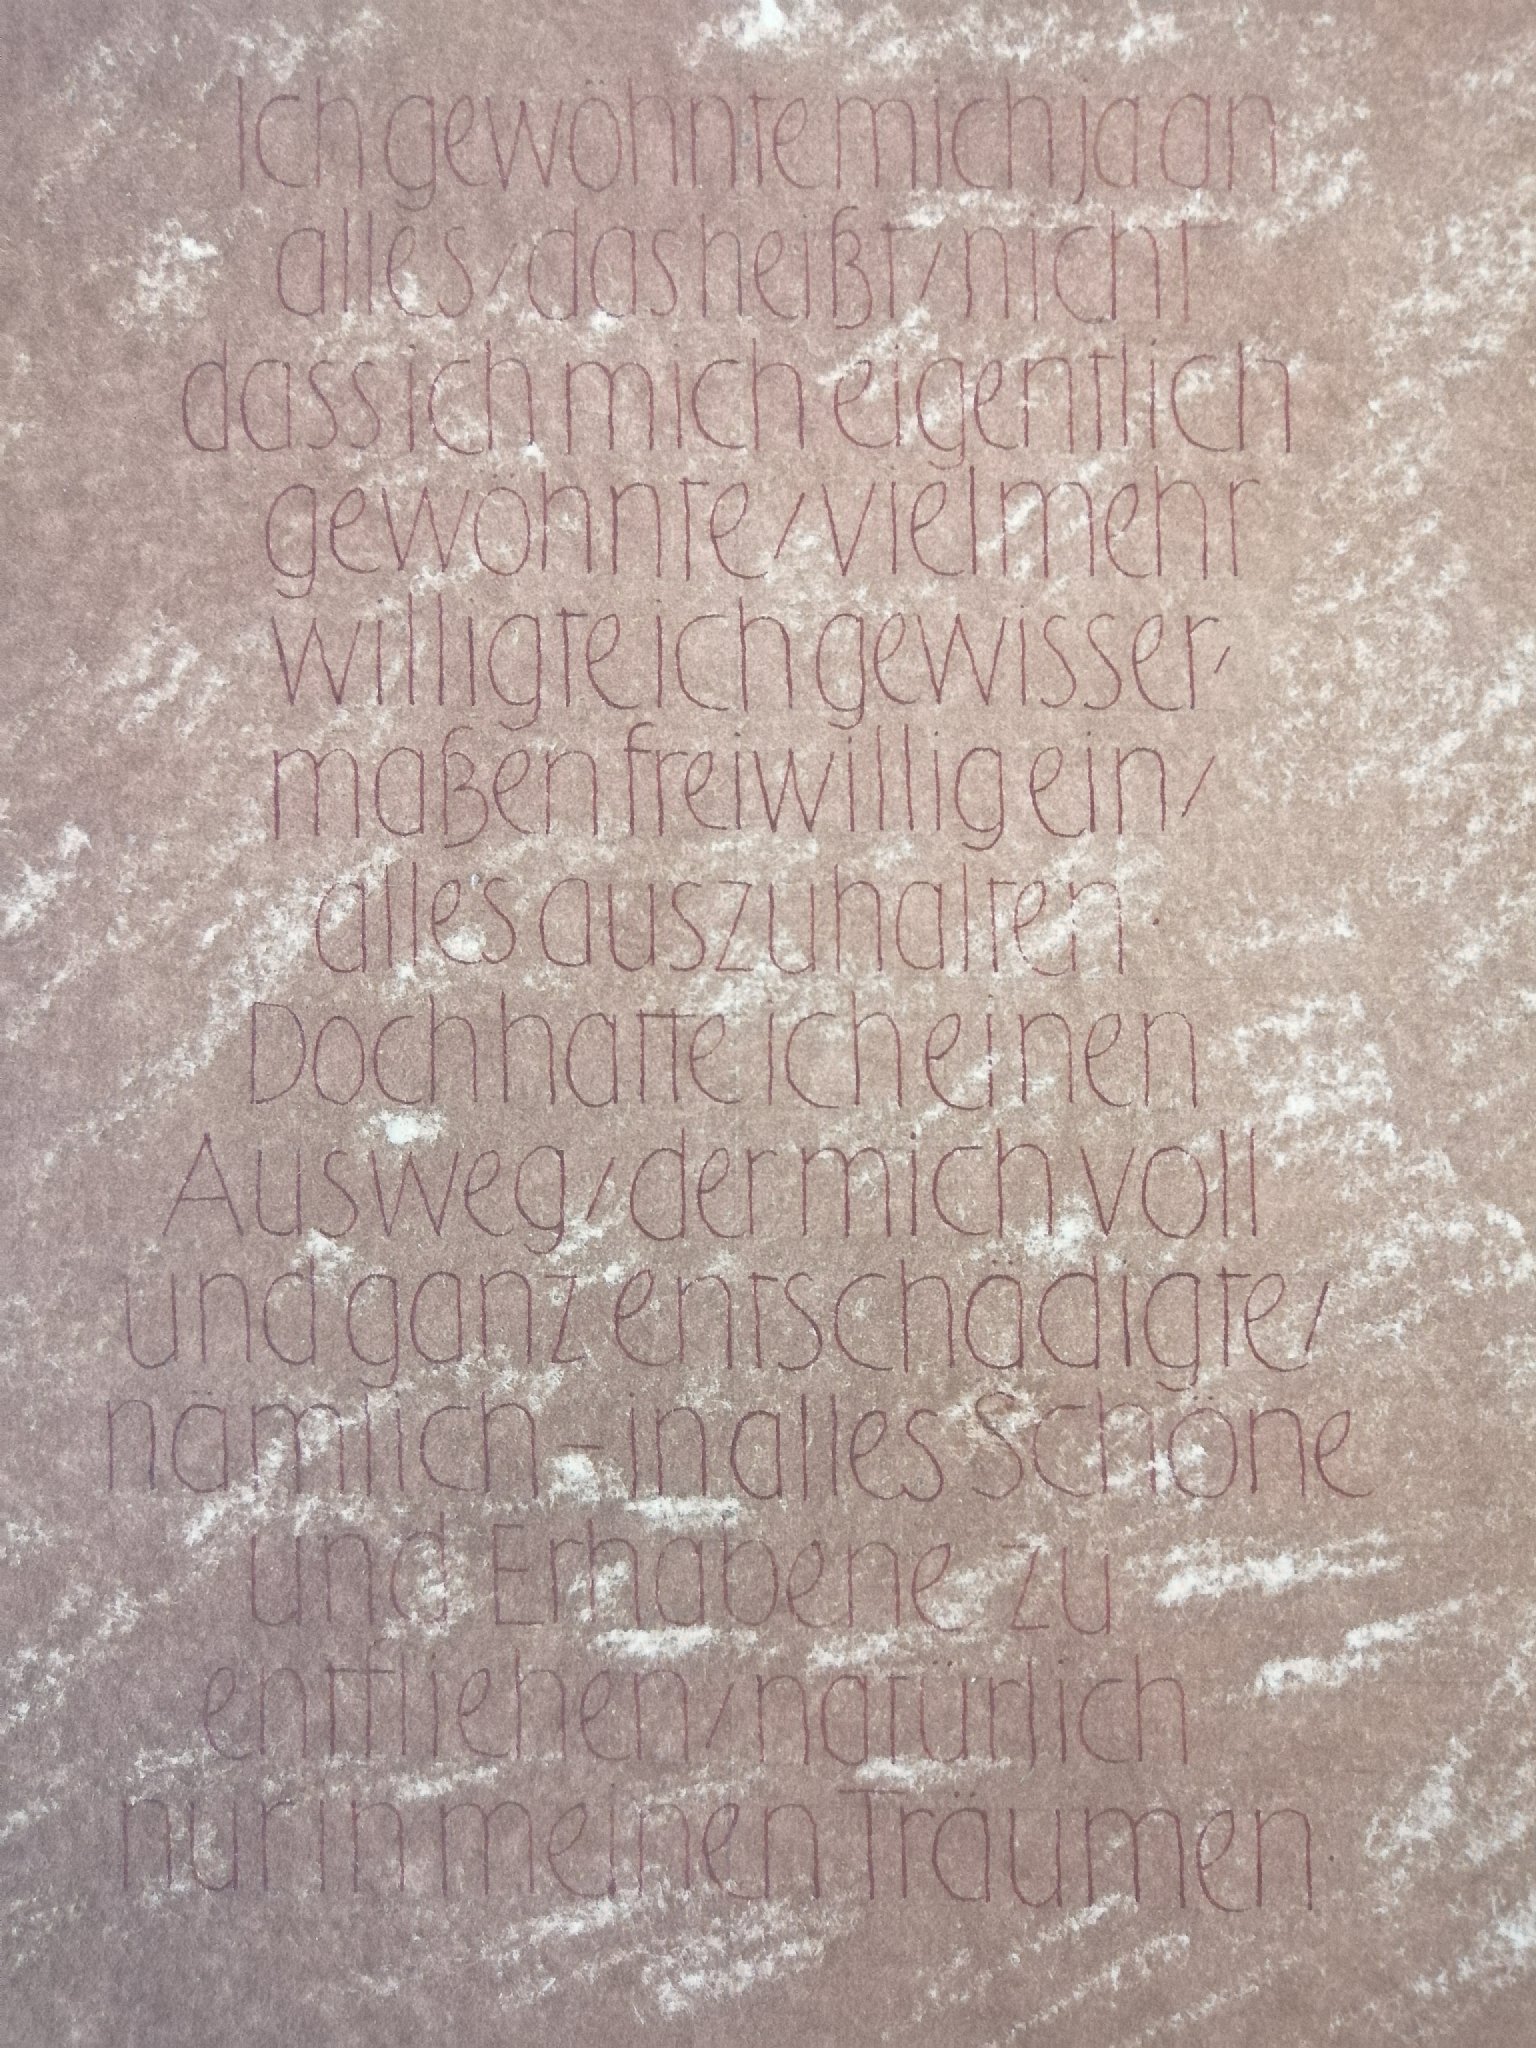 Ich gewöhnte mich ja an
alles, das heißt, nicht
dass ich mich eigentlich
gewöhnte, vielmehr
willigte ich gewisser-
maßen freiwillig ein,
alles auszuhalten.
Doch hatte ich einen
Ausweg, der mich voll
und ganz entschädigte,
nämlich – in alles Schöne
und Erhabene zu
entfliehen, natürlich
nur in meinen Träumen.